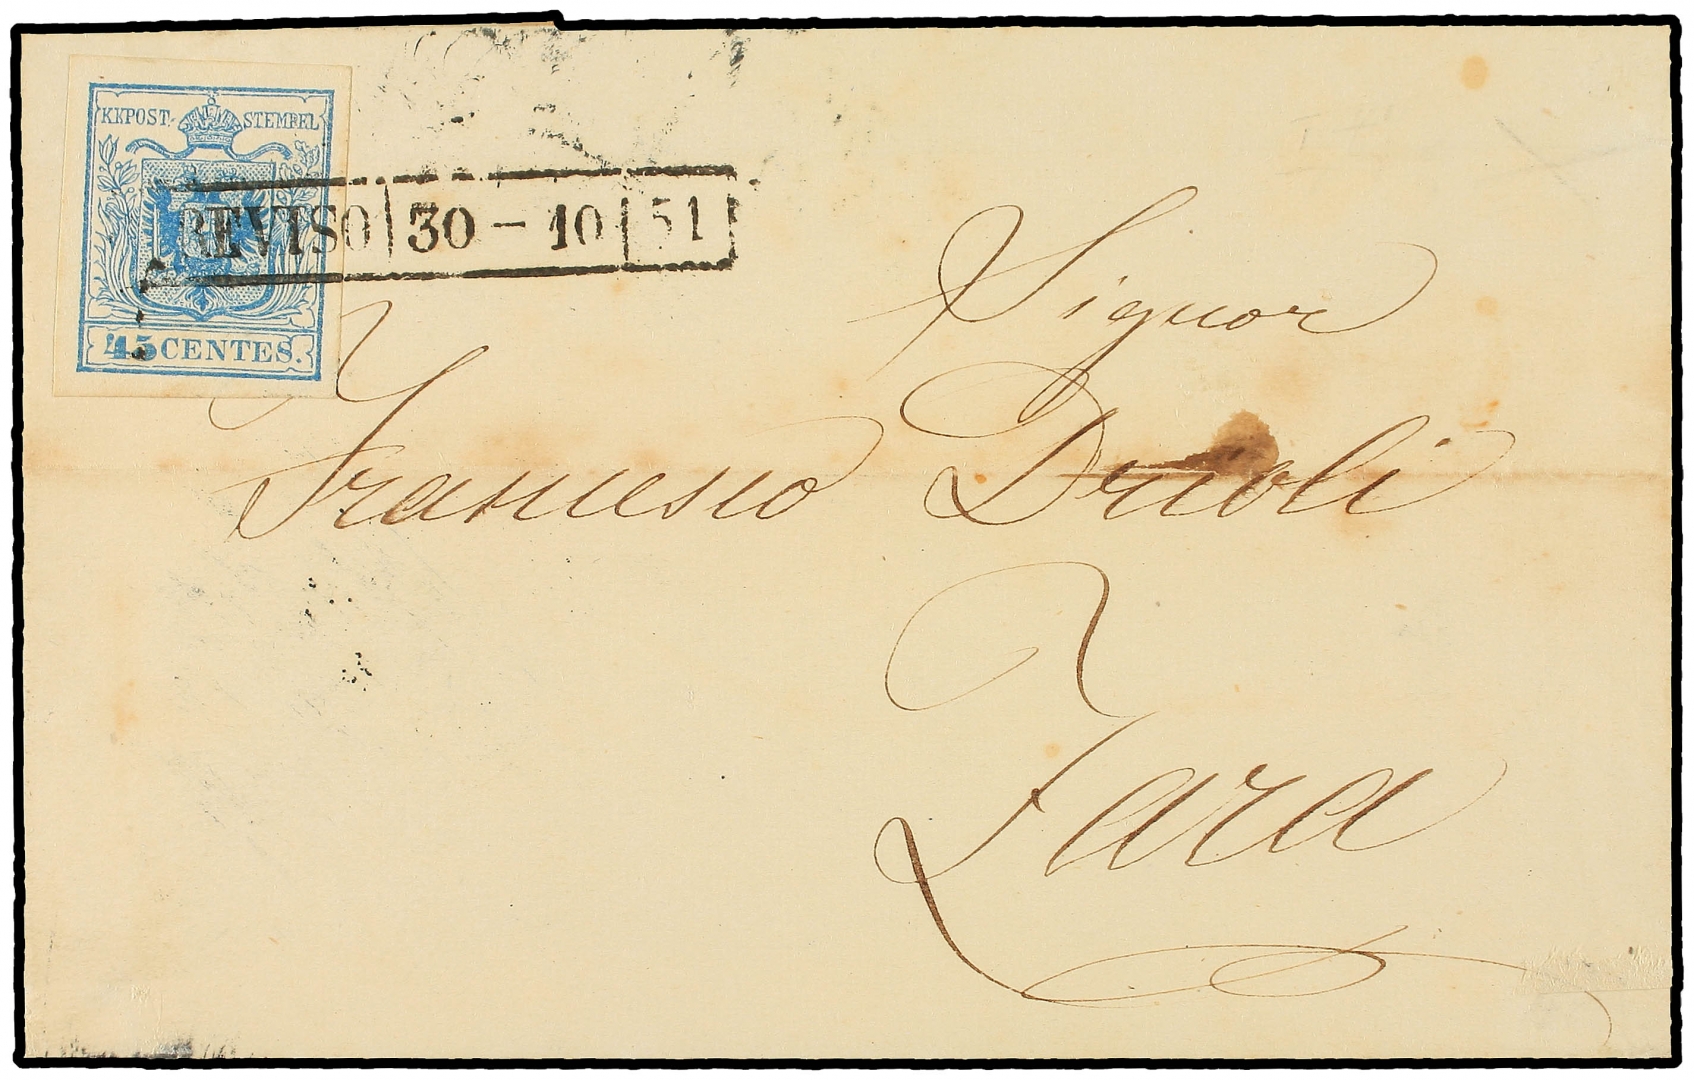 KKPOST-STEMPEL
TREVISO 30-10 51
45 CENTES.
Signor
Francesco Drioli
Zara